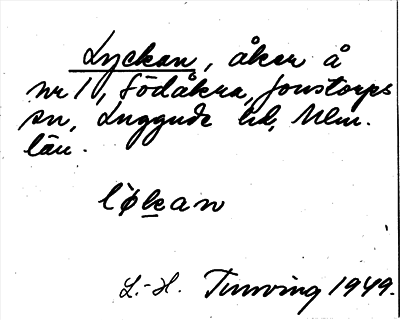 Lyckan, åker å
nr 1, Södåkra, Jonstorps
sn, Luggude hd, Mlm.
län.
løkan
L.-H. Tunving 1949.